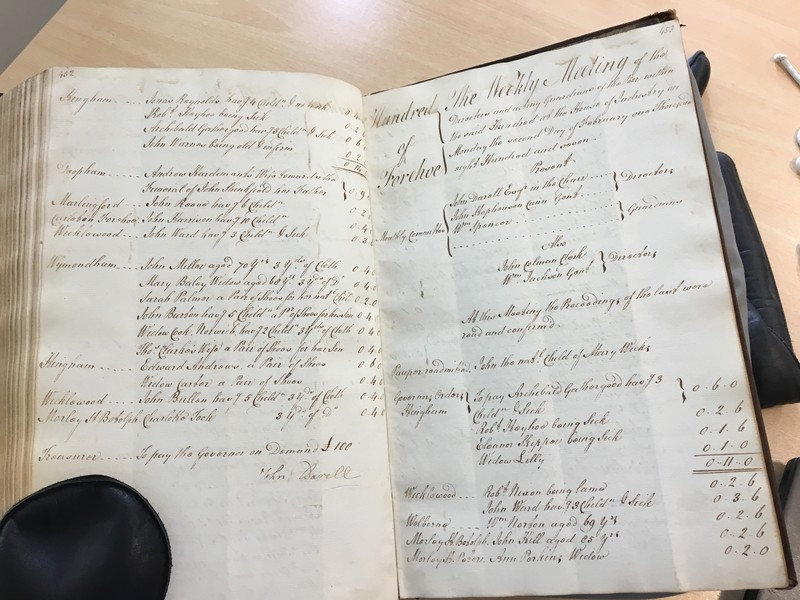 452
Hingham ---- Jonas Reynolds hav.g 4 Child.n & no work 0 4
Rob.t Hoyhoe being Sick 0 2
Archibald Gathergood hav.g 3 Child.n & Sick 0 6
John Warnes being old & infirm
0 2
0 14
Deopham ---- Andrew Hardiment's Wife towards the
Funeral of John Stubfield her Father } 0 9
Marlingford -- John Reeve hav.g 6 Child.n 0 2
Carleton Forehoe John Harrison hav.g 10 Child.n 0 4
Wicklewood --- John Ward hav.g 3 Child.n & Sick 0 3
Wymondham --- John Mellor aged 70 Y.rs 3 Y.ds of Cloth 0 4
Mary Baley Widow aged 60 Y.rs 3 Y.ds of D.o 0 4
Sarah Palmer a Pair of Shoes for her nat.l Chil. 0 2 0
John Barton hav.g 5 Child.n a P.r of Shoes for his Son 0 4
Widow Cook, Norwich, hav.g 2 Child.n 3 Y.ds of Cloth 0 4
Tho.s Clarke's Wife a Pair of Shoes for her Son 0 4
Hingham --- Edward Andrews a Pair of Shoes 0 6
Widow Carter a Pair of Shoes 0 4
Wicklewood --- John Bullen hav.g 5 Child.n 3 Y.ds of Cloth 0 4
Morley S.t Botolph Charlotte 3 Y.ds of D.o 0 4
Treasurer ---- To pay the Governor on Demand £100
John Darell
453
Hundred of Forehoe { The Weekly Meeting of the
Directors and acting Guardians of the Poor within
the said Hundred at the House of Industry on
Monday the second Day of February one Thousand
eight Hundred and seven.
Present
Monthly Committee { John Darell Esq.r in the Chair ---- } Directors
John Stephenson Cann Gent
W.m Spencer ---- } Guardians
Also
John Colman Clerk } Directors
W.m Jackson Gent
At this Meeting the Proceedings of the last were
read and confirm'd.
Pauper readmitted. John the nat.l Child of Mary Weeks
Governor, Orders { To pay Archibald Gathergood hav.g 3
Hingham Child.n & Sick } 0 - 6 - 0
Rob.t Hoyhoe being Sick 0 - 2 - 6
Eleanor Skipper being Sick 0 - 1 - 6
Widow Lilly 0 - 1 - 0
0 - 11 - 0
Wicklewood --- Rob.t Nixon being lame 0 - 2 - 6
John Ward hav.g 3 Child.n & Sick 0 - 3 - 6
Welborne --- W.m Norton aged 69 Y.rs 0 - 2 - 6
Morley S.t Botolph John Hill aged 85 Y.rs 0 - 2 - 6
Morley S.t Peter Ann Perkins Widow 0 - 2 - 0